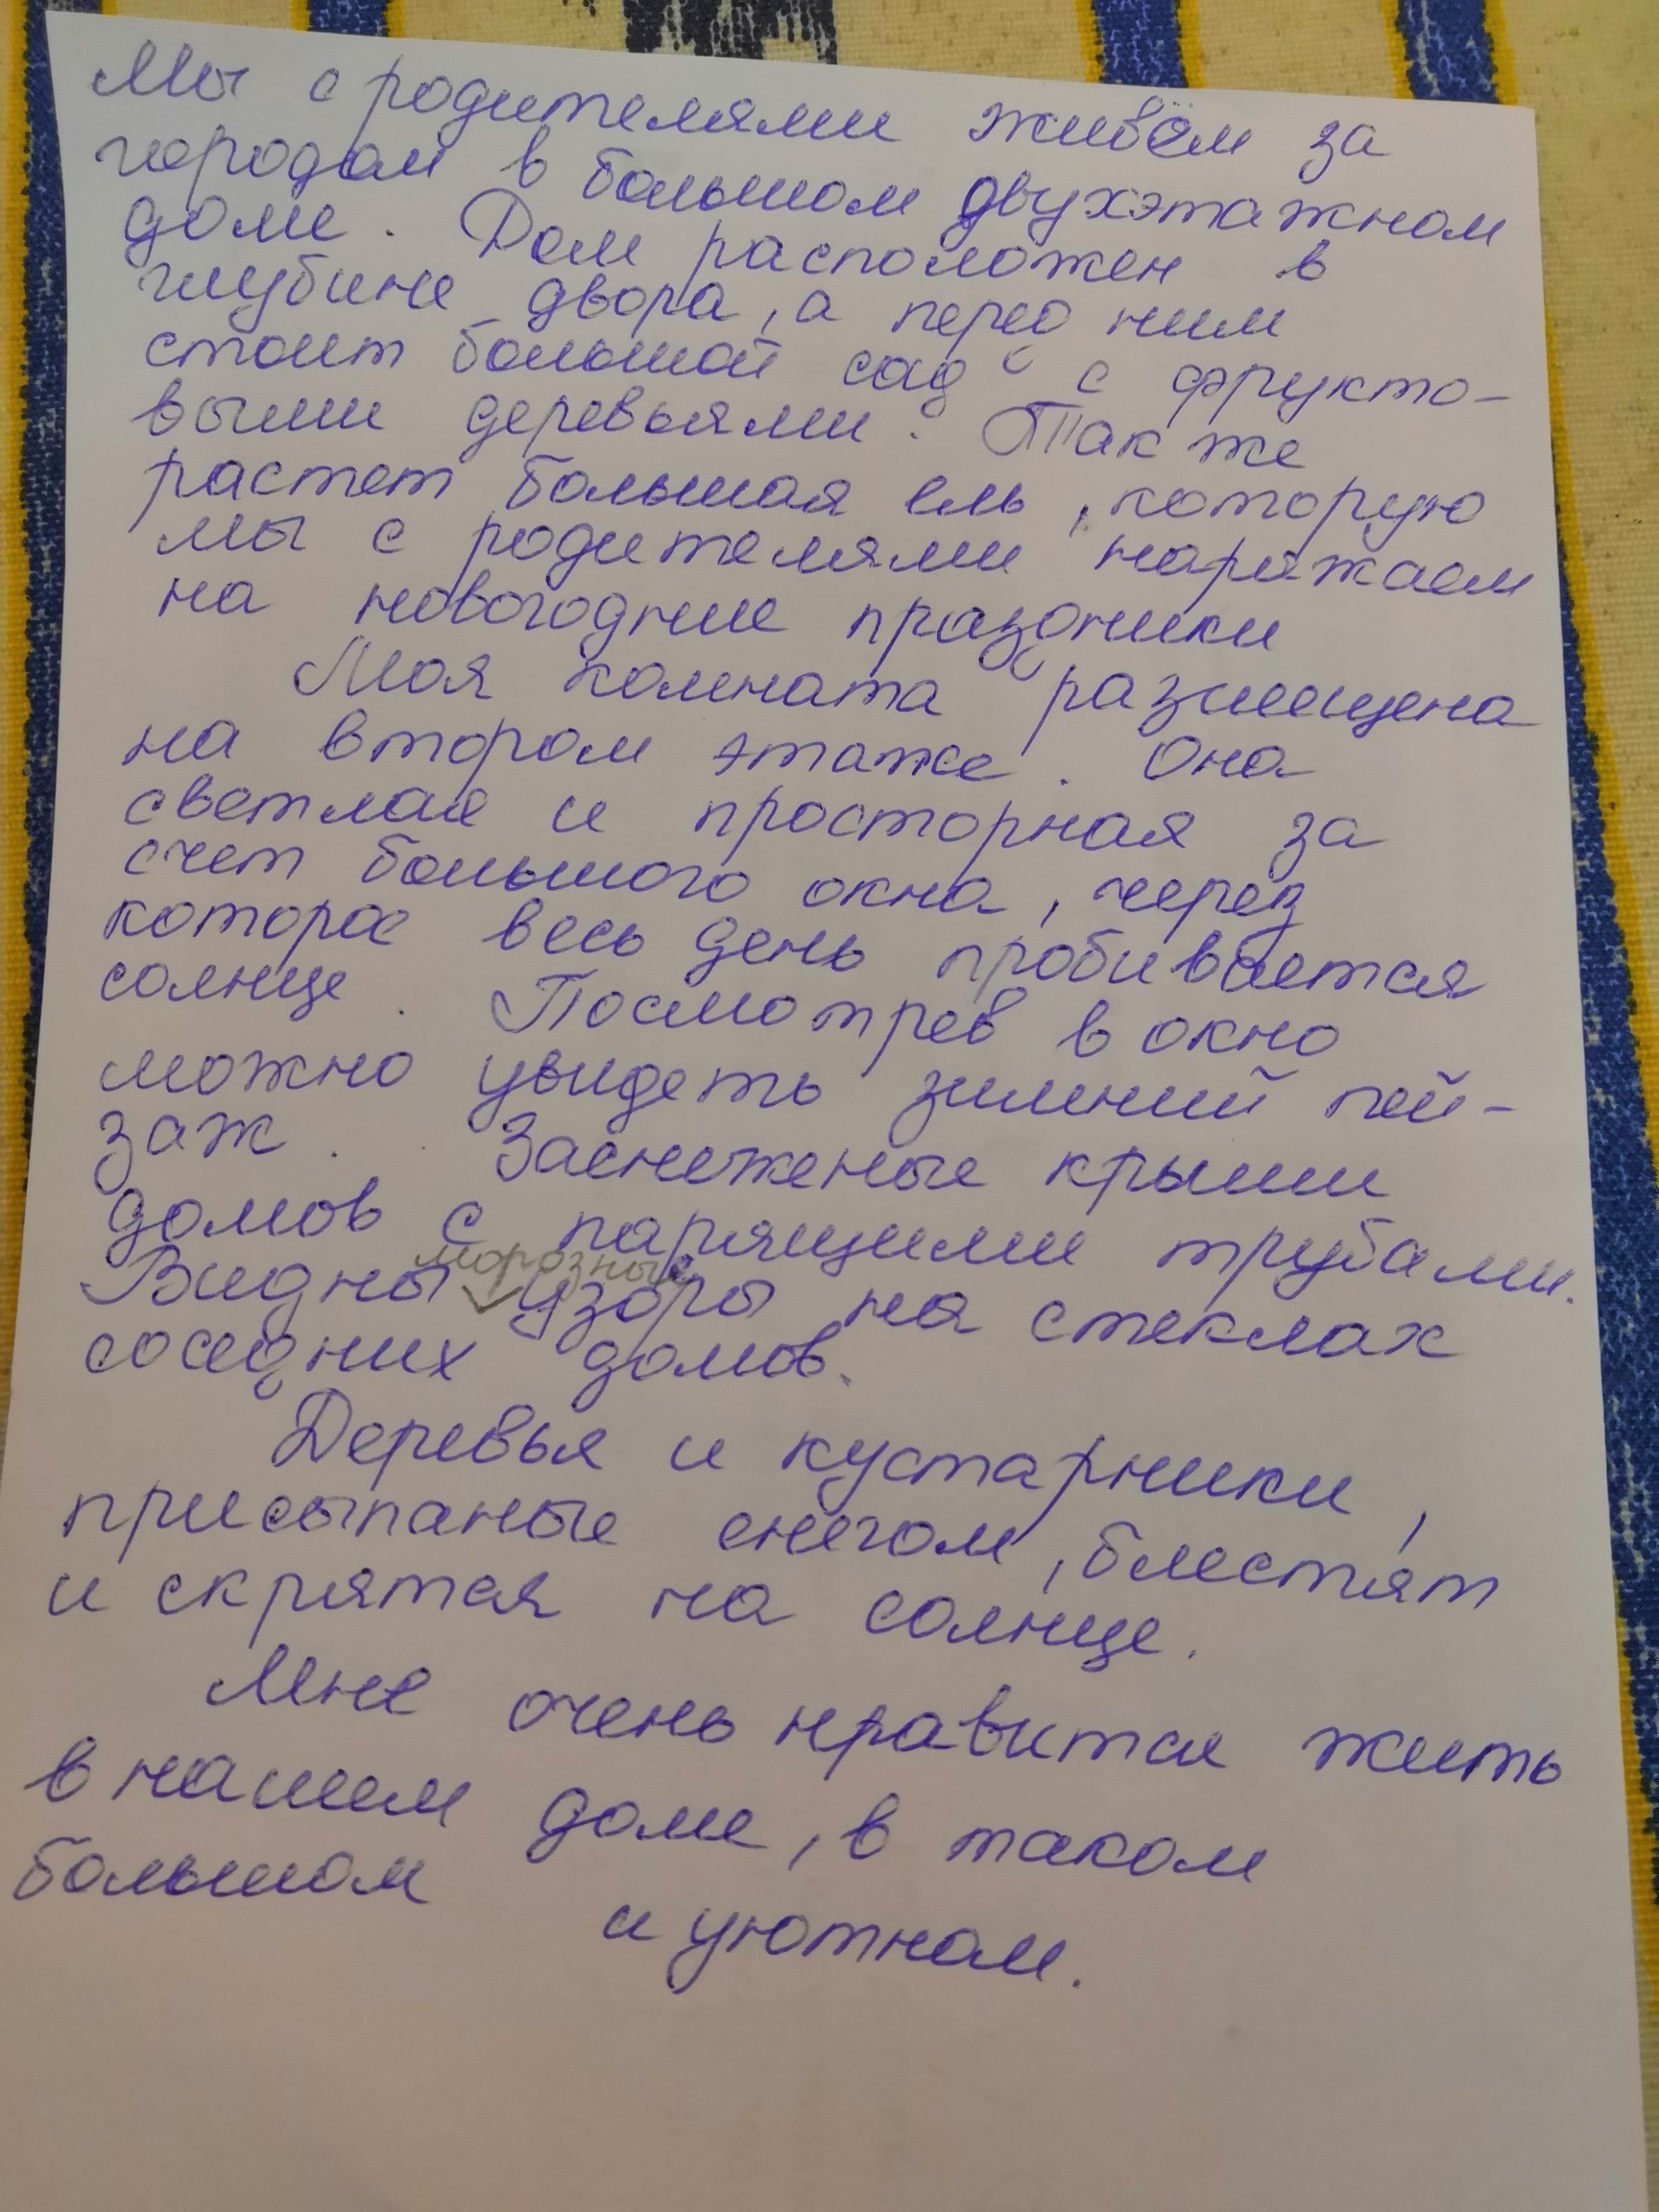 Мы с родителями живём за
городом в большом двухэтажном
доме. Дом расположен в
глубине двора, а перед ним
стоит большой сад с фрукто-
выми деревьями. Также
растет большая ель, которую
мы с родителями наряжаем
на новогодние праздники
Моя комната размещена
на втором этаже. Она
светлая и просторная за
счет большого окна, через
которое весь день пробивается
солнце. Посмотрев в окно
можно увидеть зимний пей-
заж. Заснеженые крыши
домов с парящими трубами.
морозные
Видны узоры на стеклах
соседних домов.
Деревья и кустарники,
присыпаные снегом, блестят
и скрятся на солнце.
Мне очень нравится жить
в нашем доме, в таком
большом и уютном.